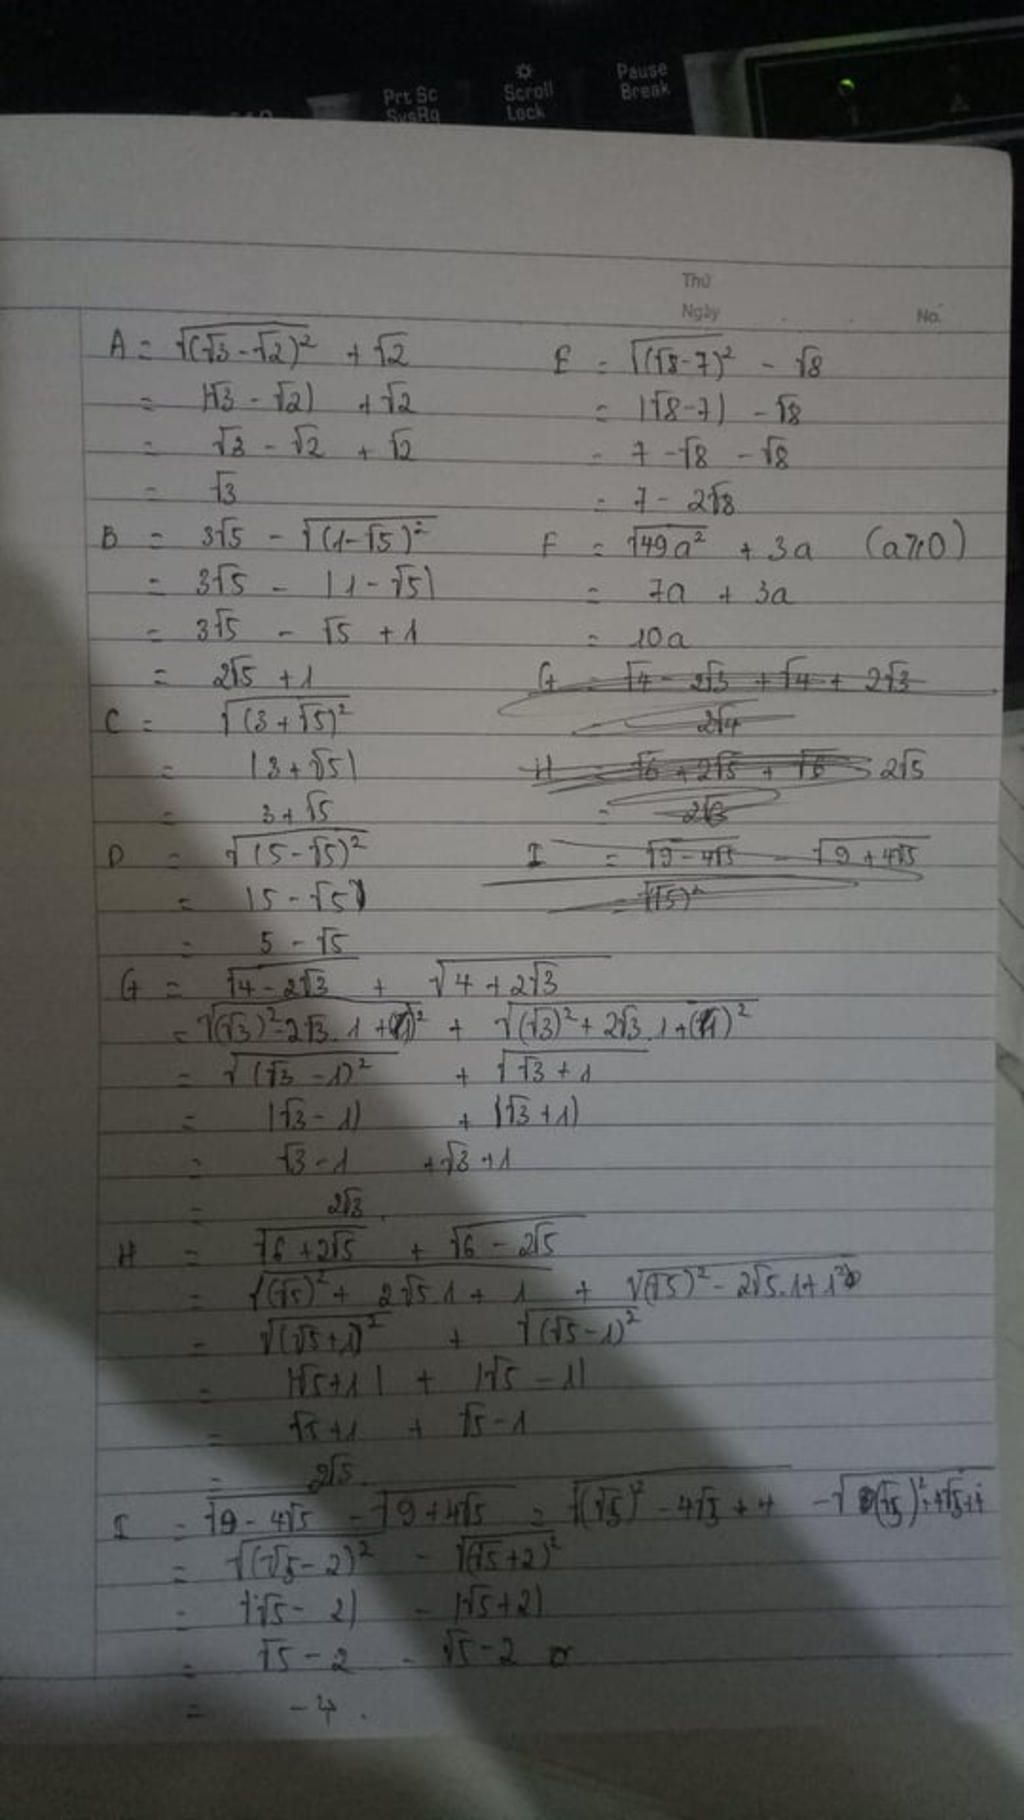 Prt Sc
SysRq
Scroll
Lock
Pause
Break
Thứ
Ngày
No.
A = √(√3 - √2)² + √2
= |√3 - √2| + √2
= √3 - √2 + √2
= √3
B = 3√5 - √(1-√5)²
= 3√5 - |1-√5|
= 3√5 - √5 + 1
= 2√5 + 1
C = √(3+√5)²
= |3+√5|
= 3+√5
D = √(5-√5)²
= |5-√5|
= 5-√5
E = √(√8-7)² - √8
= |√8-7| - √8
= 7 - √8 - √8
= 7 - 2√8
F = √49a² + 3a (a≥0)
= 7a + 3a
= 10a
G = √4 - 2√3 + √4 + 2√3
2√4
H = √6 + 2√5 + √6 2√5
=
I = √9-4√5 - √9+4√5
(√5)²
G = √4-2√3 + √4+2√3
= √(√3)²-2√3.1+(1)² + √(√3)²+2√3.1+(1)²
= √(√3-1)² + √√3+1
= |√3-1| + |√3+1|
= √3-1 +√3+1
= 2√3.
H = √6+2√5 + √6-2√5
= √(√5)²+ 2√5.1+ 1 + √(√5)²-2√5.1+1²
= √(√5+1)² + √(√5-1)²
= |√5+1| + |√5-1|
= √5+1 + √5-1
= 2√5.
I = √9-4√5 - √9+4√5 = √(√5)²-4√5+4 - √(√5)²+4√5+4
= √(√5-2)² - √(√5+2)²
= |√5-2| - |√5+2|
= √5-2 - √5-2
= -4.